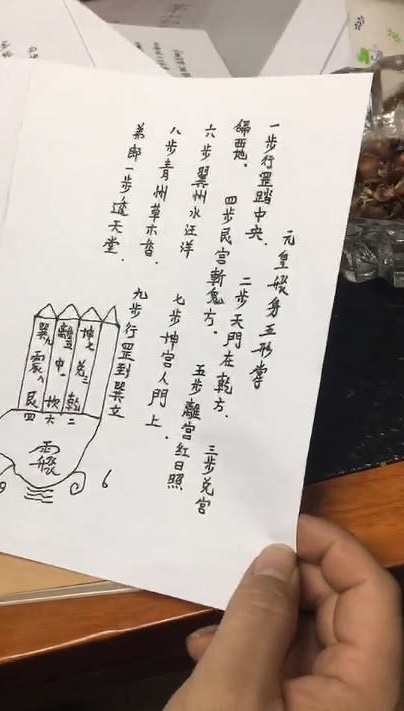 元皇身五形掌
一步行罡踏中央．
二步天門在乾方．
三步兌宮
偏西地．
四步艮宮斬鬼方．
五步離宮紅日照
六步翼州水汪洋
七步坤宮人門上．
八步青州草木香．
九步行罡到巽立
弟郎一步逵天堂．
坤七 兌三 乾二
離 中一 坎六
巽九 震八 艮四
6